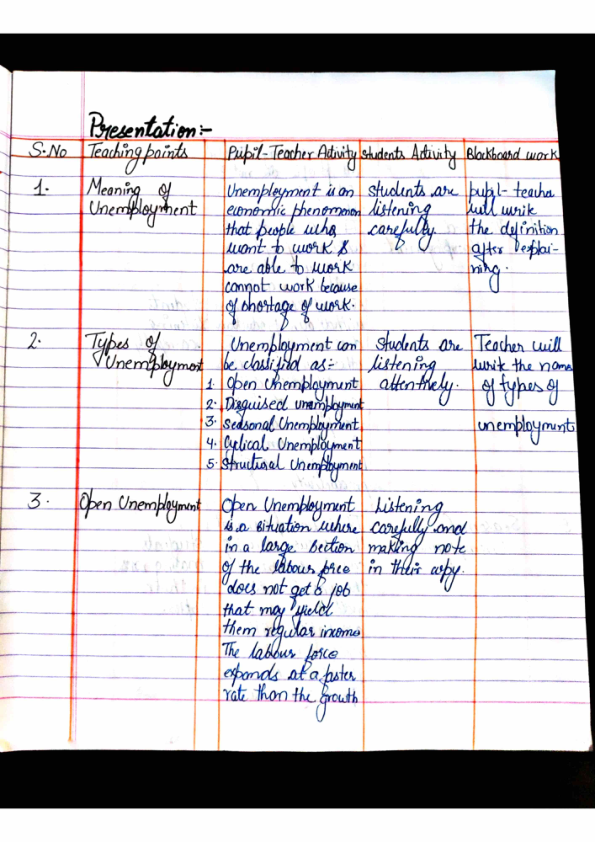 Presentation:-
S.No Teaching points Pupil-Teacher Activity Students Activity Blackboard work
1. Meaning of Unemployment
Unemployment is an
economic phenomenon
that people who
want to work &
are able to work
cannot work because
of shortage of work.
students are
listening
carefully.
pupil-teacher
will write
the definition
after explai-
ning.
2. Types of
Unemployment
Unemployment can
be classified as:-
1. Open Unemployment
2. Disguised unemployment
3. Seasonal Unemployment
4. Cyclical Unemployment
5. Structural Unemployment
students are
listening
attentively.
Teacher will
write the name
of types of
unemployments
3. Open Unemployment
Open Unemployment
is a situation where
in a large section
of the labour force
does not get a job
that may yield
them regular income
The labour force
expands at a faster
rate than the growth
Listening
carefully and
making note
in their copy.